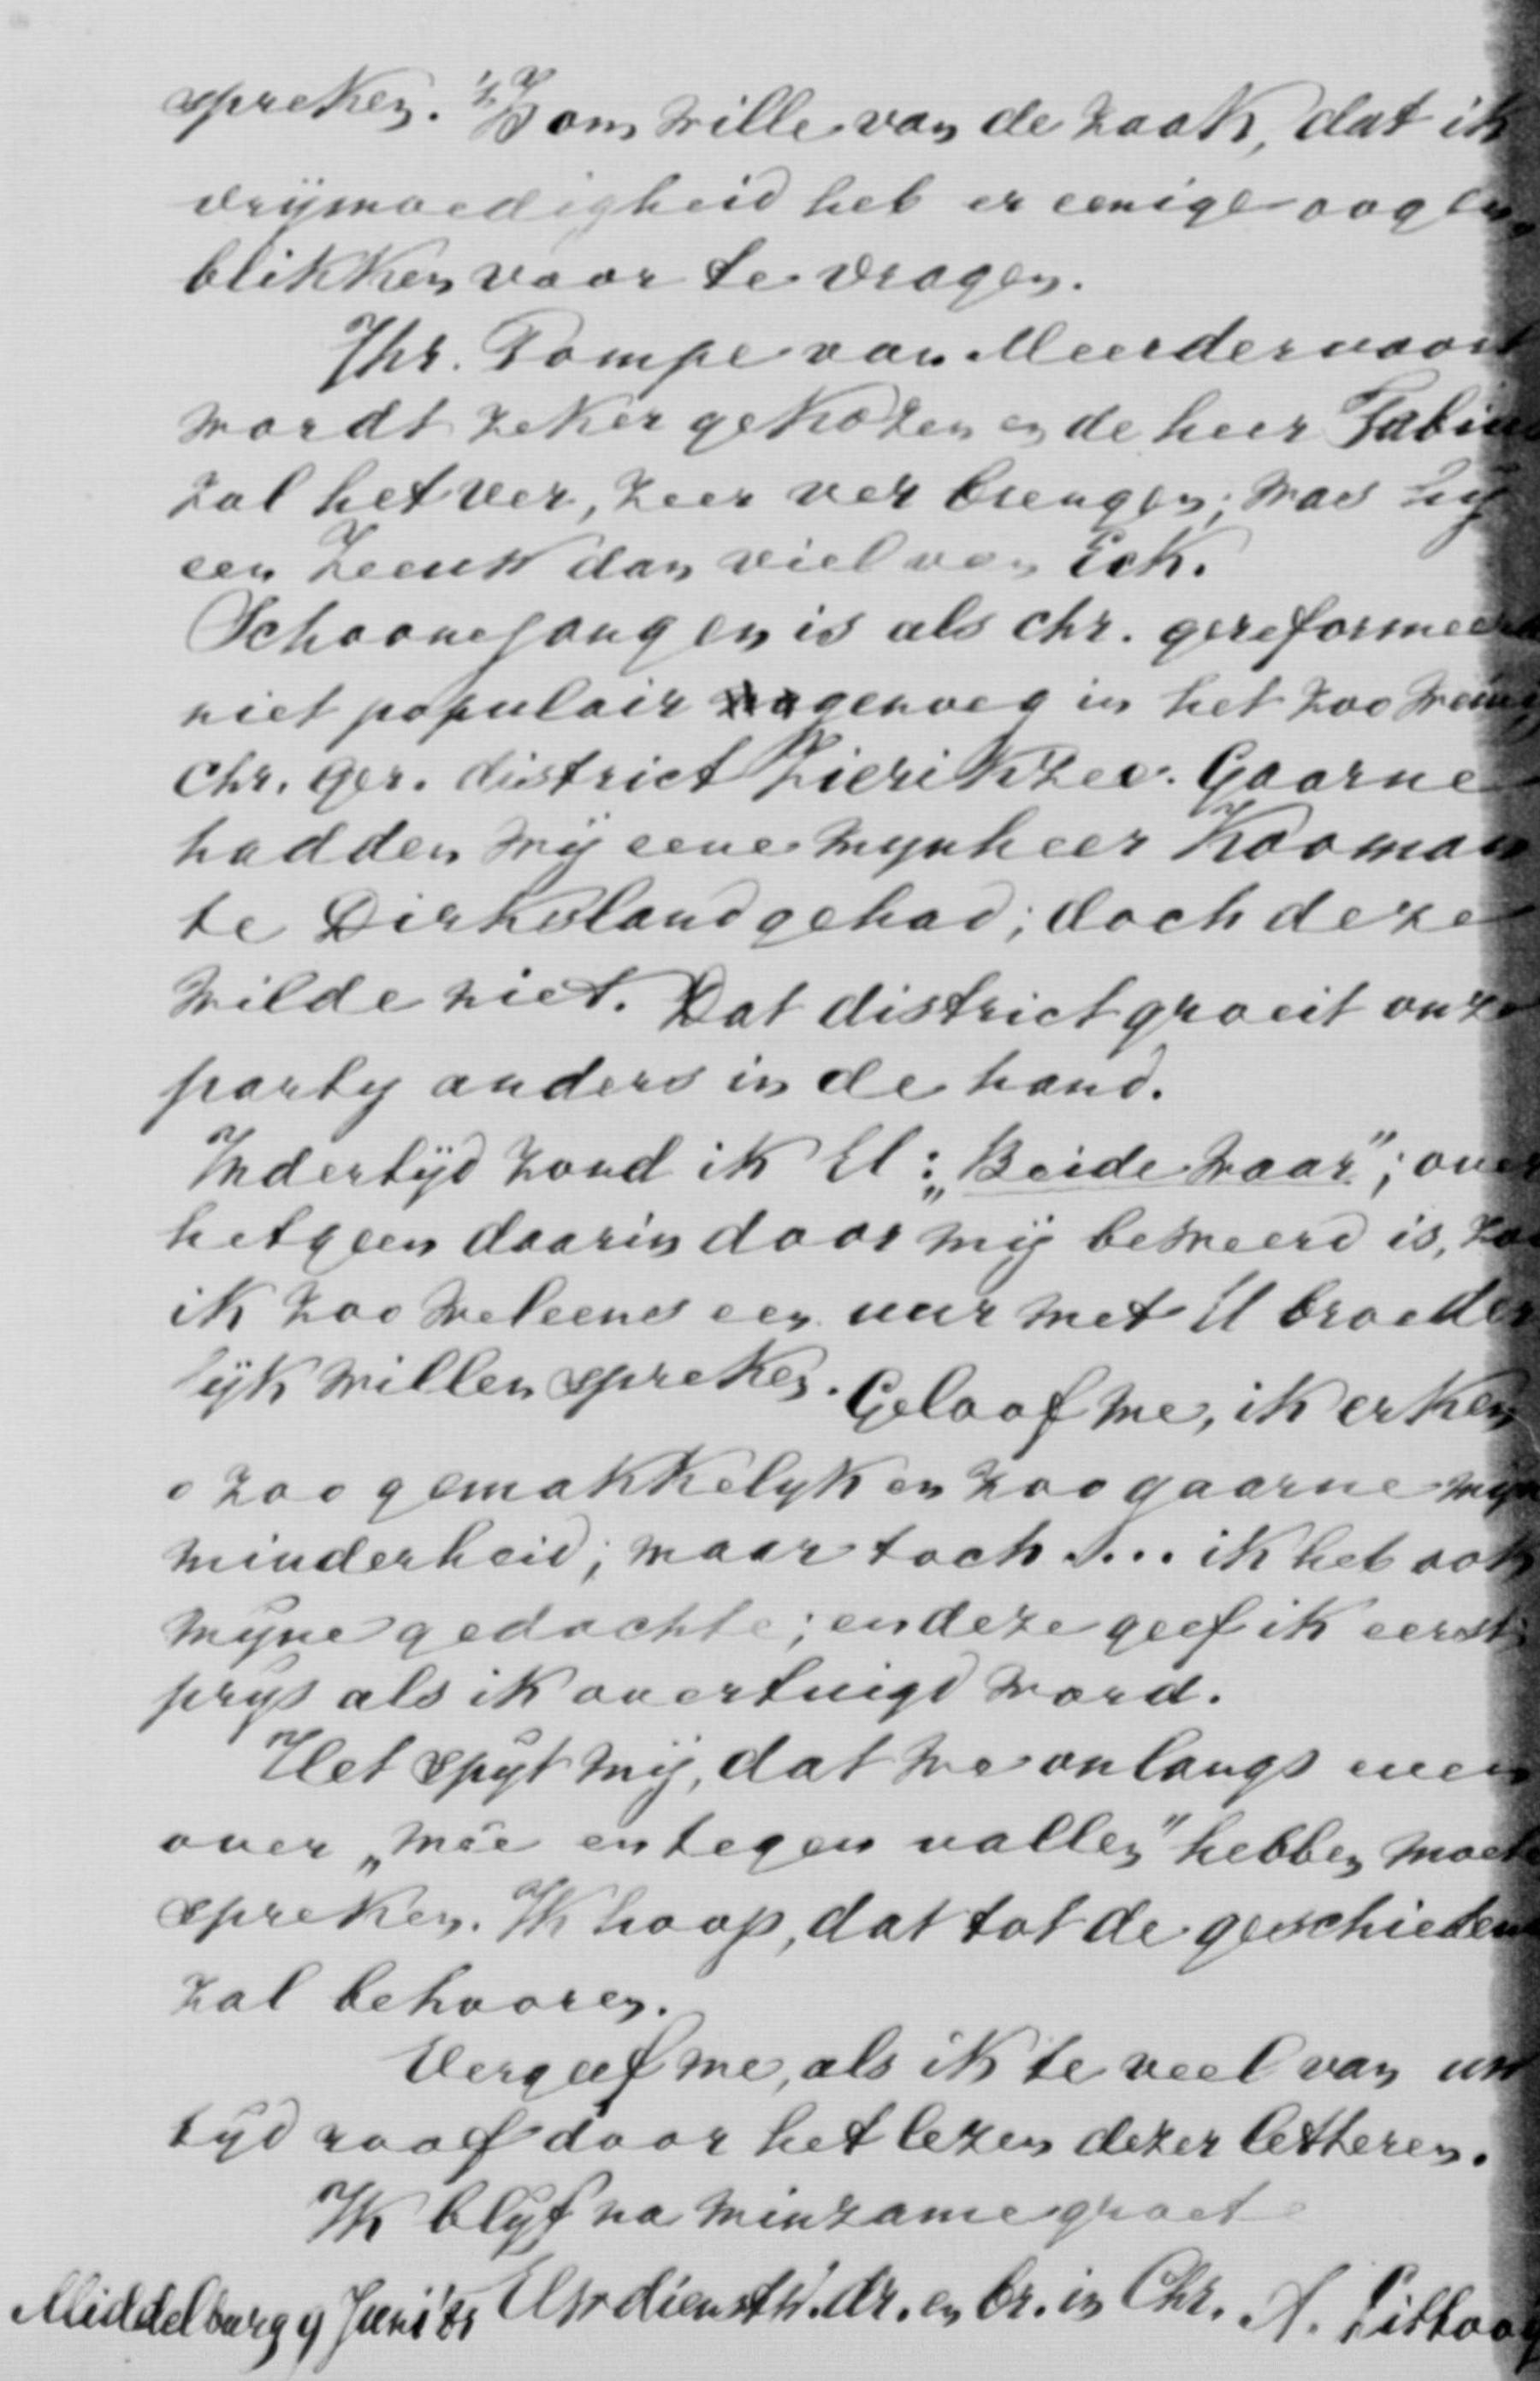 spreken. 't Is om wille van de zaak, dat ik
vrijmoedigheid heb er eenige oogen
blikken voor te vragen.
Jhr. Pompe van Meerdervoort
wordt zeker gekozen en de heer Fabius
zal het ver, zeer ver brengen; was hij
een Zeeuw dan viel van Eck.
Schoonejongen is als chr. gereformeerd
niet populair genoeg in het zoo weinig
chr. ger. district Zierikzee. Gaarne
hadden wij eene mynheer Kooman
te Dirksland gehad; doch deze
wilde niet. Dat district groeit onze
party anders in de hand.
Indertyd zond ik U: „Beide waar"; over
hetgeen daarin door mij beweerd is, zou
ik zoo weleens een uur met U broeder
lijk willen spreken. Geloof me, ik erken
o zoo gemakkelyk en zoo gaarne myn
minderheid; maar toch .... ik heb ook
myne gedachte; en deze geef ik eerst
prys als ik overtuigd word.
Het spyt mij, dat we onlangs even
over „meê en tegen vallen" hebben moet
spreken. Ik hoop, dat tot de geschieden
zal behooren.
Vergeef me, als ik te veel van uw
tyd roof door het lezen dezer letteren.
Ik blyf na minzame groete
Middelburg 9 Juni '88 UEw dienstw. dr. en br. in Chr. A. Littooy